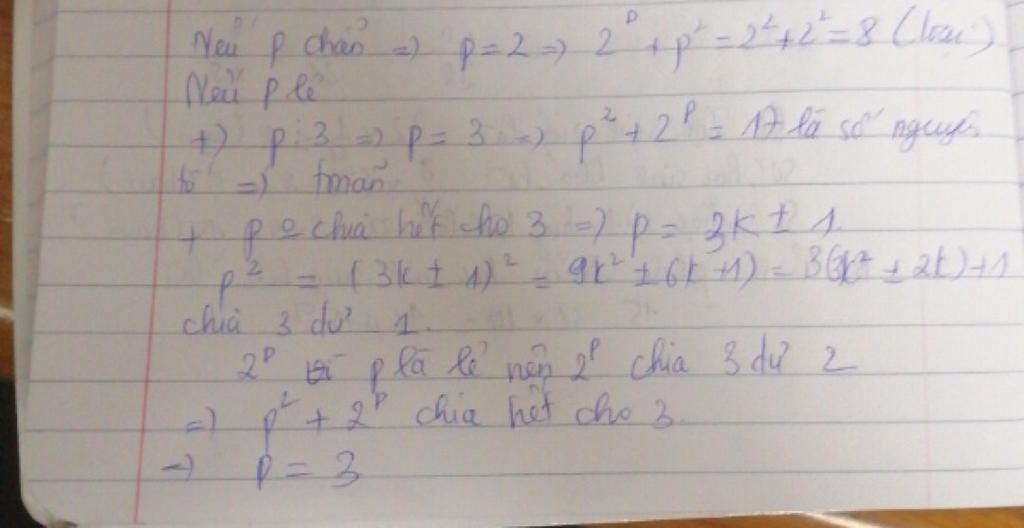 Nếu p chẵn => p = 2 => 2^p + p^2 = 2^2 + 2^2 = 8 (loại)
Nếu p lẻ
+) p ⋮ 3 => p = 3 => p^2 + 2^p = 17 là số nguyên
tố => tmãn
+ p o chia hết cho 3 => p = 3k ± 1
p^2 = (3k ± 1)^2 = 9k^2 ± 6k + 1) = 3(3k^2 ± 2k) + 1
chia 3 dư 1.
2^p vì p là lẻ nên 2^p chia 3 dư 2
=> p^2 + 2^p chia hết cho 3
=> p = 3